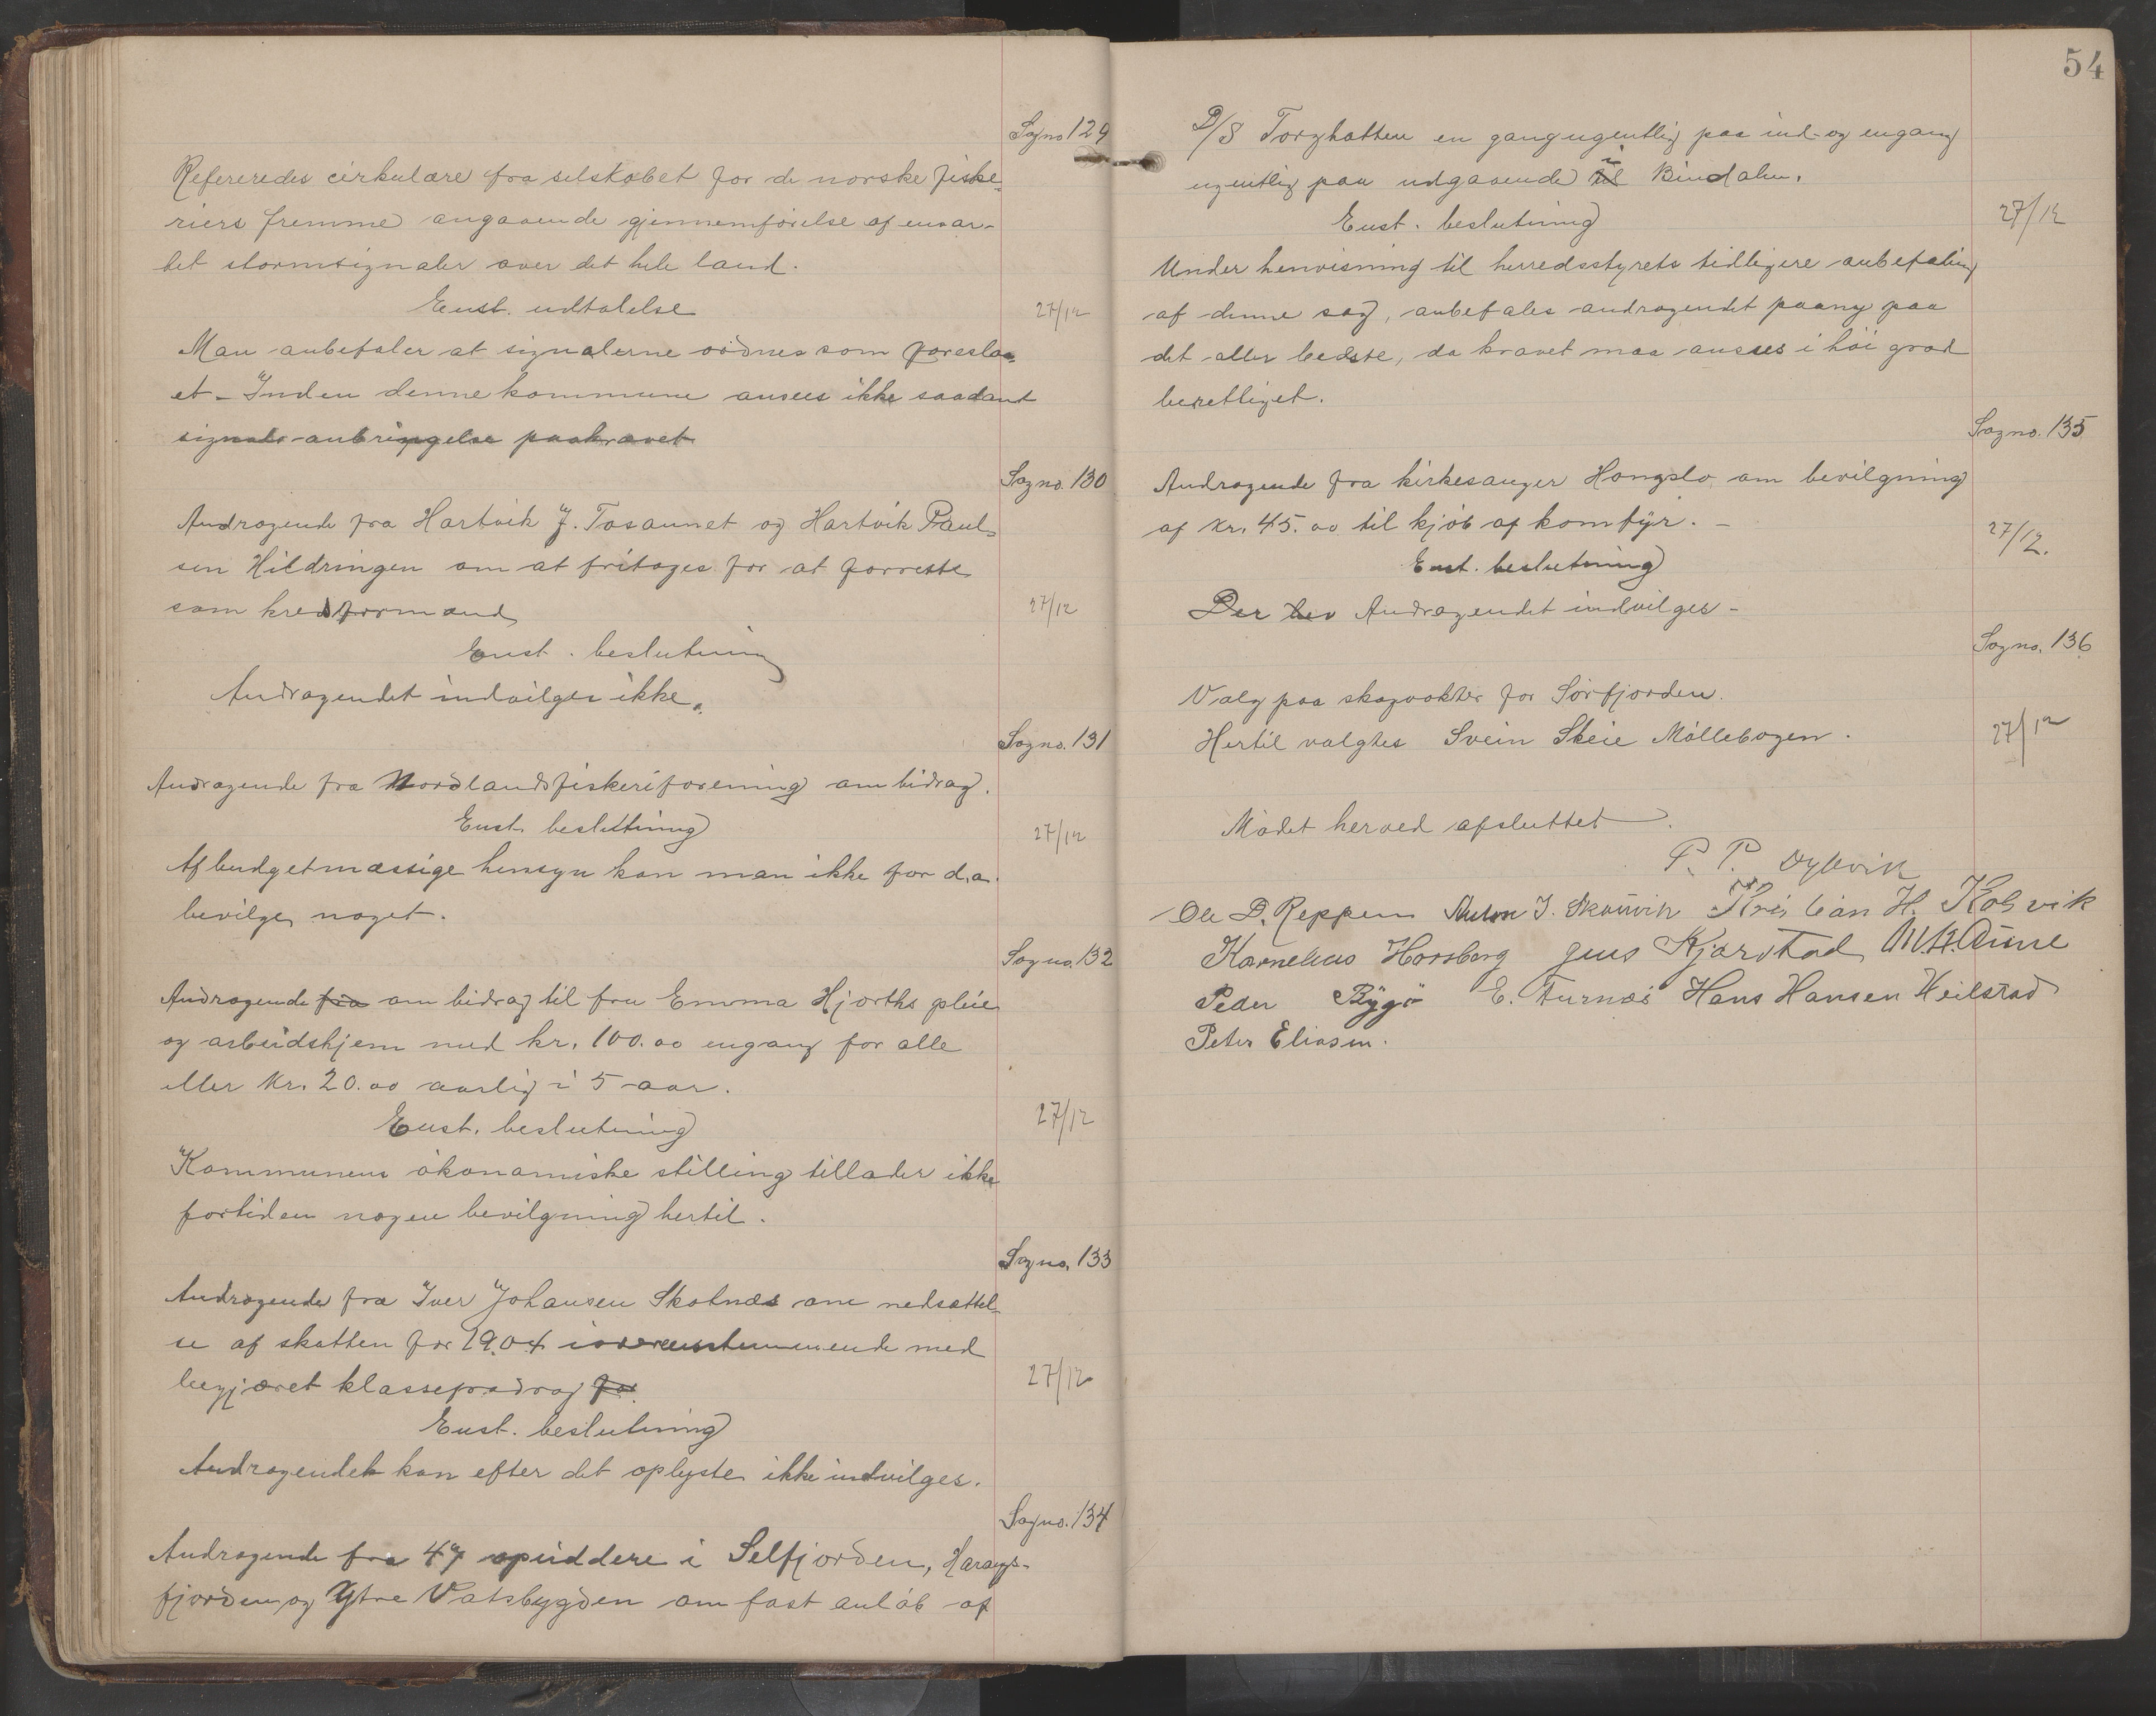 Sagno 129
Refereredes cirkulære fra selskabet for de norske fiske-
riers fremme angaaende gjennemförelse af envar-
let stormsignaler over det hele land.
Enst. udtalelse
27/12
Man anbefaler at signalerne ordnes som foreslaa-
et - Inden denne kommune ansees ikke saadant
signals anbringelse paakrævet
Sagno. 130
Andragende fra Hartvik J. Tosaunet og Hartvik Paul-
sen Hildringen om at fritages for at forrette
som kredsformand
27/12
Enst. beslutning
Andragendet indvilges ikke.
Sagno. 131
Andragende fra Nordlandsfiskeriforening om bidrag.
Enst. beslutning
27/12
Af budgetmæssige hensyn kan man ikke for d.a.
bevilge noget.
Sagno. 132
Andragende fra om bidrag til fru Emma Hjorths pleie
og arbeidshjem med kr. 100.00 engang for alle
eller kr. 20.00 aarlig i 5 aar.
Enst. beslutning
27/12
Kommunens ökonomiske stilling tillader ikke
fortiden nogen bevilgning hertil.
Sagno. 133
Andragende fra Iver Johansen Skotnæs om nedsættel-
se af skatten for 1904 ioverensstemmende med
begjæret klassefradrag for
27/12
Enst. beslutning
Andragendet kan efter det oplyste ikke indvilges.
Sagno. 134
Andragende fra 47 opsiddere i Selfjorden, Harangs-
fjorden og Ytre Vatsbygden om fast anlöb af
54
D/S Torghatten en gang ugentlig paa ind- og engang
ugentlig paa udgaaende til i Bindalen.
Enst. beslutning
27/12
Under henvisning til herredsstyrets tidligere anbefaling
af denne sag, anbefales andragendet paany paa
det aller bedste, da kravet maa ansees i höi grad
berettiget.
Sagno. 135
Andragende fra kirkesanger Hongslo om bevilgning
af kr. 45.00 til kjöb af komfyr. -
27/12.
Enst. beslutning
Der bev Andragendet indvilges -
Sagno. 136
Valg paa skogvokter for Sörfjorden.
Hertil valgtes Svein Skeie Möllebogen.
27/12
Mödet herved afsluttet.
P. P. Dybvik
Ole D. Reppen Anton J. Skauvik Kristian H. Kolsvik
Kornelius Horsberg Jens Kjærstad M. A. Aune
Peder Bygö E. Turnæs Hans Hansen Heilstad
Peter Eliasen.